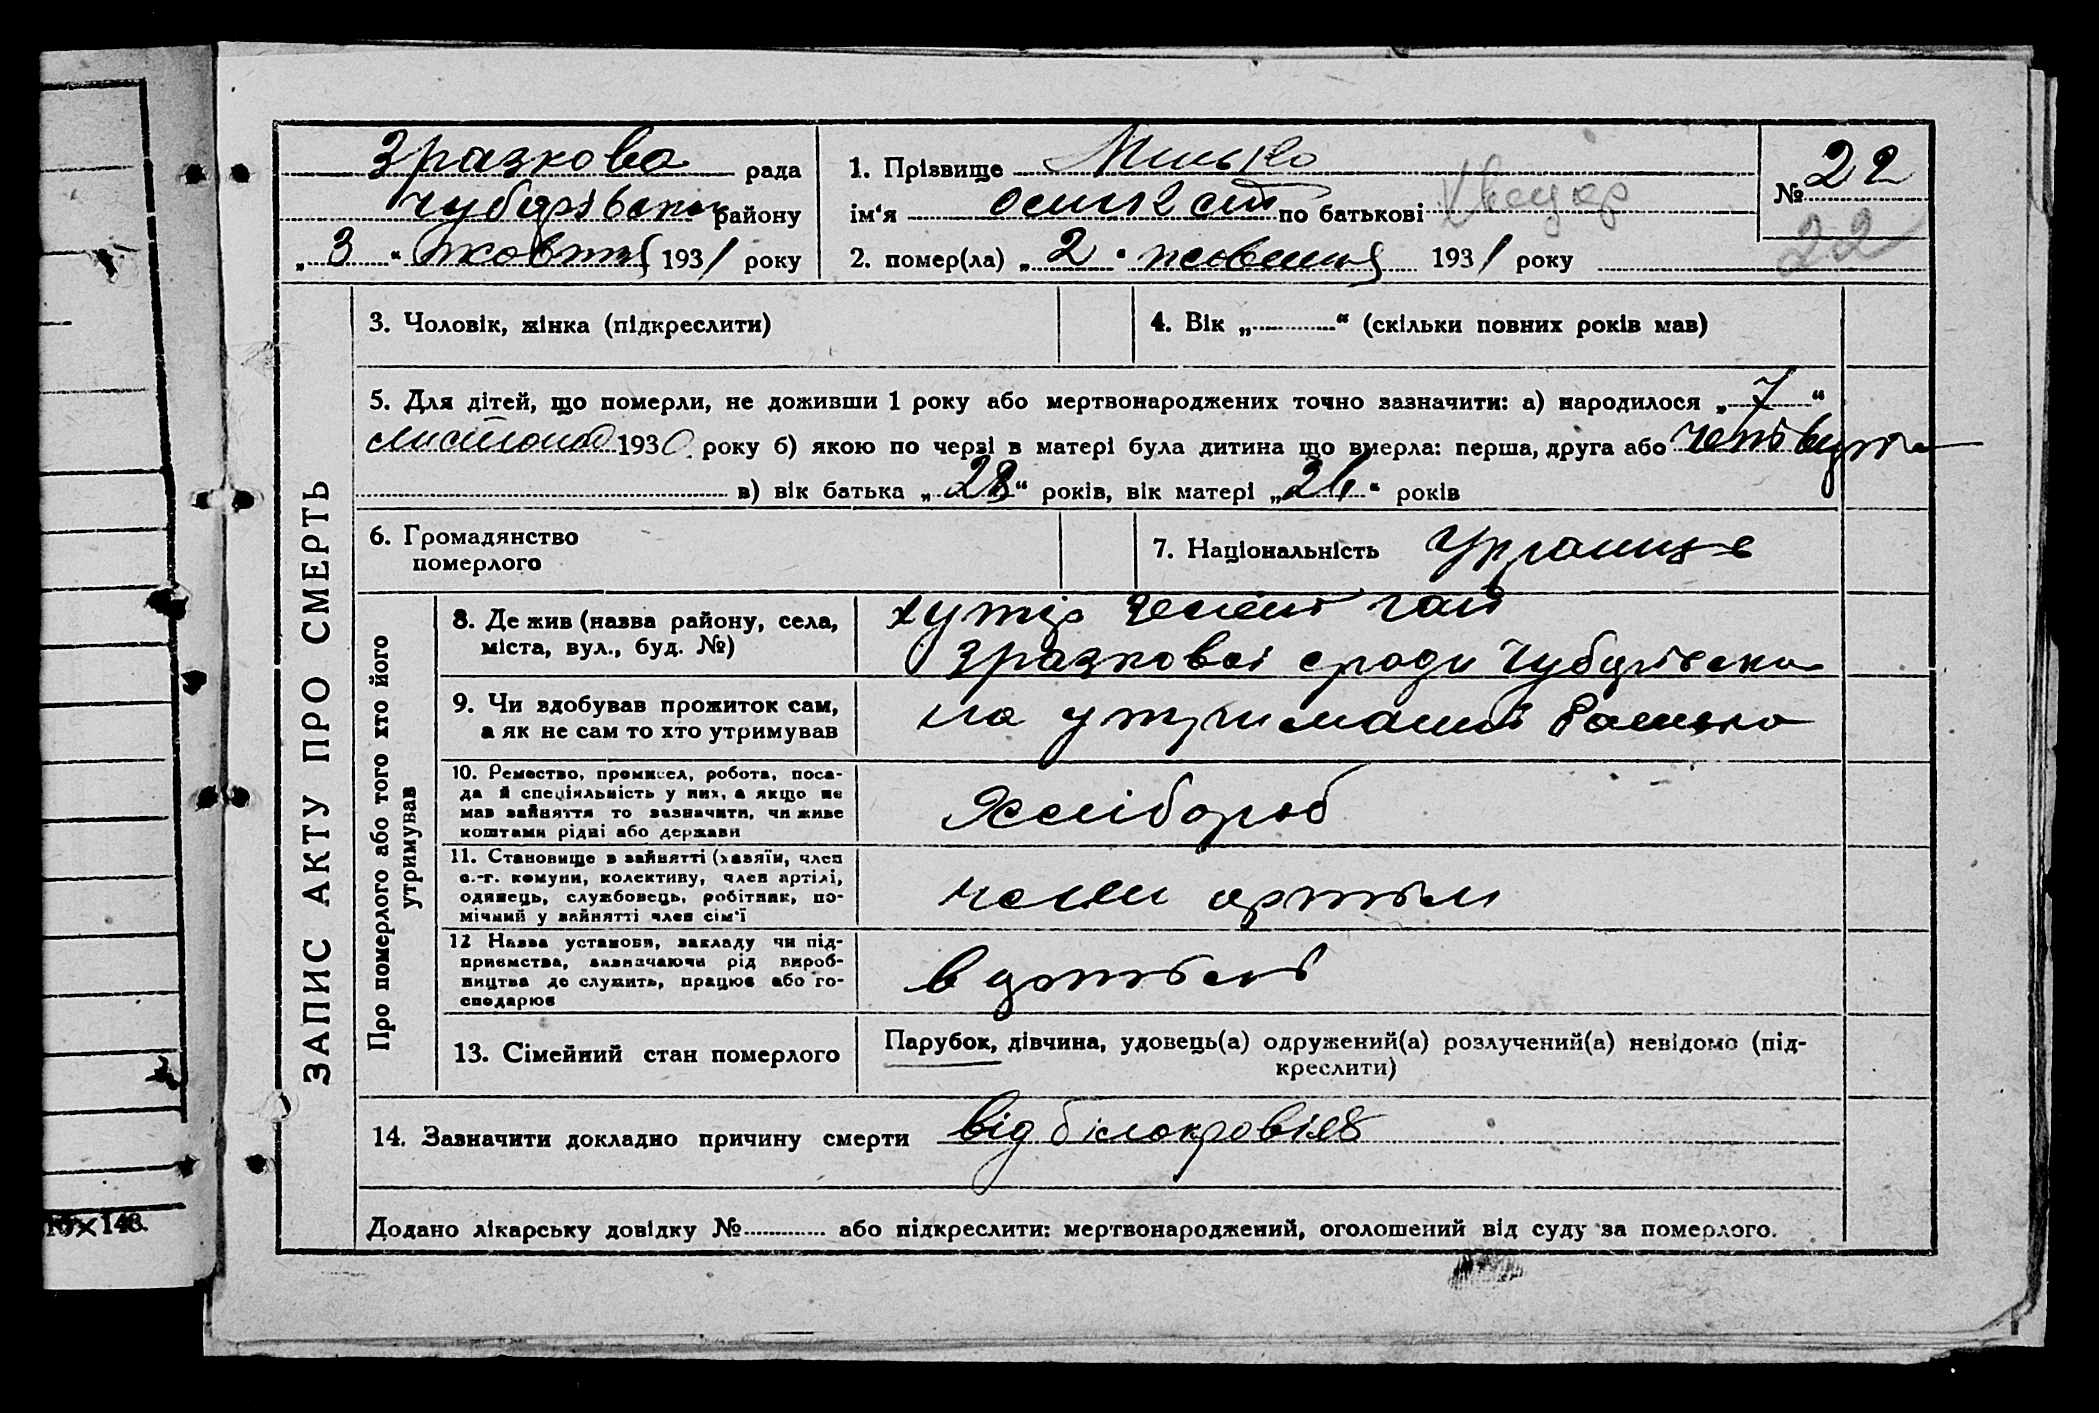 Зразкова рада
Чубарівськ району
„ 3 “ жовтня 1931 року
1. Прізвище Минько
ім‘я по батькові
2. помер(ла) „ 2 “ жовтня 1931 року
№ 22
22
ЗАПИС АКТУ ПРО СМЕРТЬ
3. Чоловік, жінка (підкреслити)
4. Вік „ “ (скільки повних років мав)
5. Для дітей, що померли, не доживши 1 року або мертвонароджених точно зазначити: а) народилося „ 7 “
листопад 1930. року б) якою по черзі в матері була дитина що вмерла: перша, друга або четверта
в) вік батька „ 28 “ років, вік матері „ 26 “ років
6. Громадянство
померлого
7. Національність Українець
Про померлого або того хто його
утримував
8. Де жив (назва району, села,
міста, вул., буд. №)
хутір Зелени гай
Зразкової сради Чубарівска
9. Чи здобував прожиток сам,
а як не сам то хто утримував
на утриманні батька
10. Ремество, промисел, робота, поса-
да й спеціяльність у них, а якщо не
мав зайняття то зазначити, чи живе
коштами рідні або держави
Хлібороб
11. Становище в зайнятті (хазяїн, член
с.-г. комуни, колективу, член артілі,
одинець, службовець, робітник, по-
мічний у зайнятті член сім‘ї
член артіли
12 Назва установи, закладу чи під-
приємства, зазначаючи рід вироб-
ництва де служить, працює або го-
сподарює
в артілі
13. Сімейний стан померлого
Парубок, дівчина, удовець(а) одружений(а) розлучений(а) невідомо (під-
креслити)
14. Зазначити докладно причину смерти від білокровія
Додано лікарську довідку № або підкреслити: мертвонароджений, оголошений від суду за померлого.
×148.